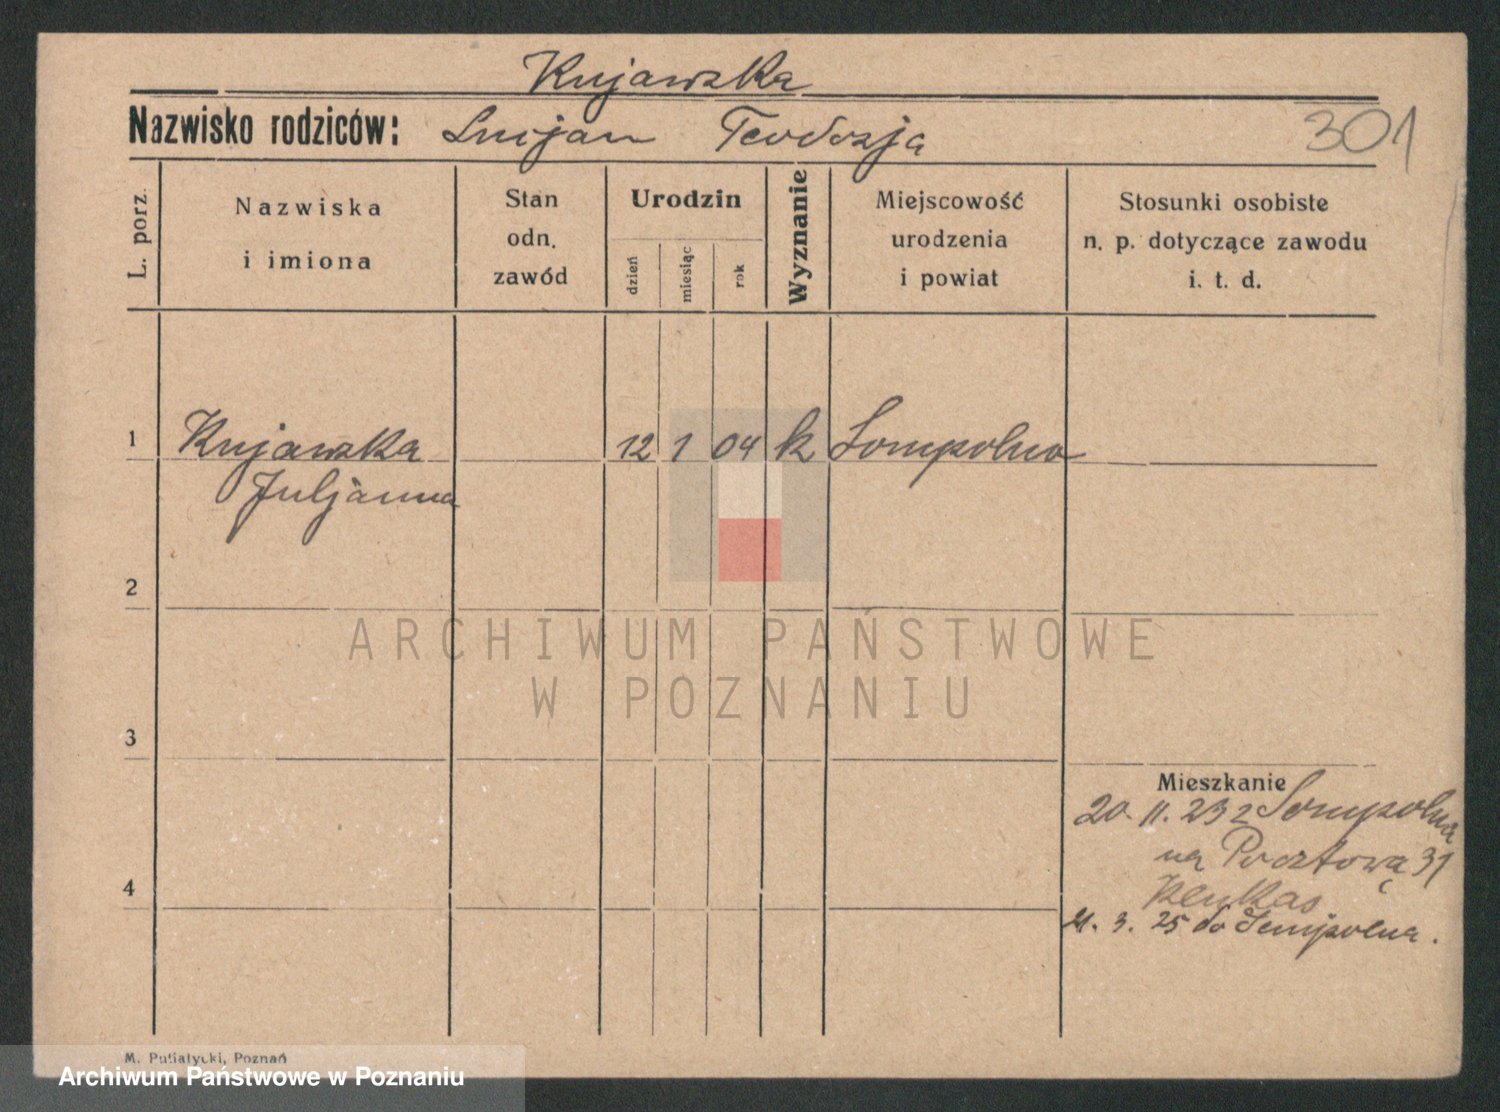 Kujawska
301
Nazwisko rodziców: Lucjan Teodozja
L. porz.
Nazwiska i imiona
Stan odn. zawód
Urodzin
dzień miesiąc rok
Wyznanie
Miejscowość urodzenia i powiat
Stosunki osobiste n. p. dotyczące zawodu i. t. d.
1 Kujawska 12 1 04 k Sompolno
Juljanna
2
ARCHIWUM PAŃSTWOWE
W POZNANIU
3
Mieszkanie
20. 11. 23 z Sompolna
na Pocztową 31
4
21. 3. 25 do Sempolna.
M. Putiatycki, Poznań
Archiwum Państwowe w Poznaniu